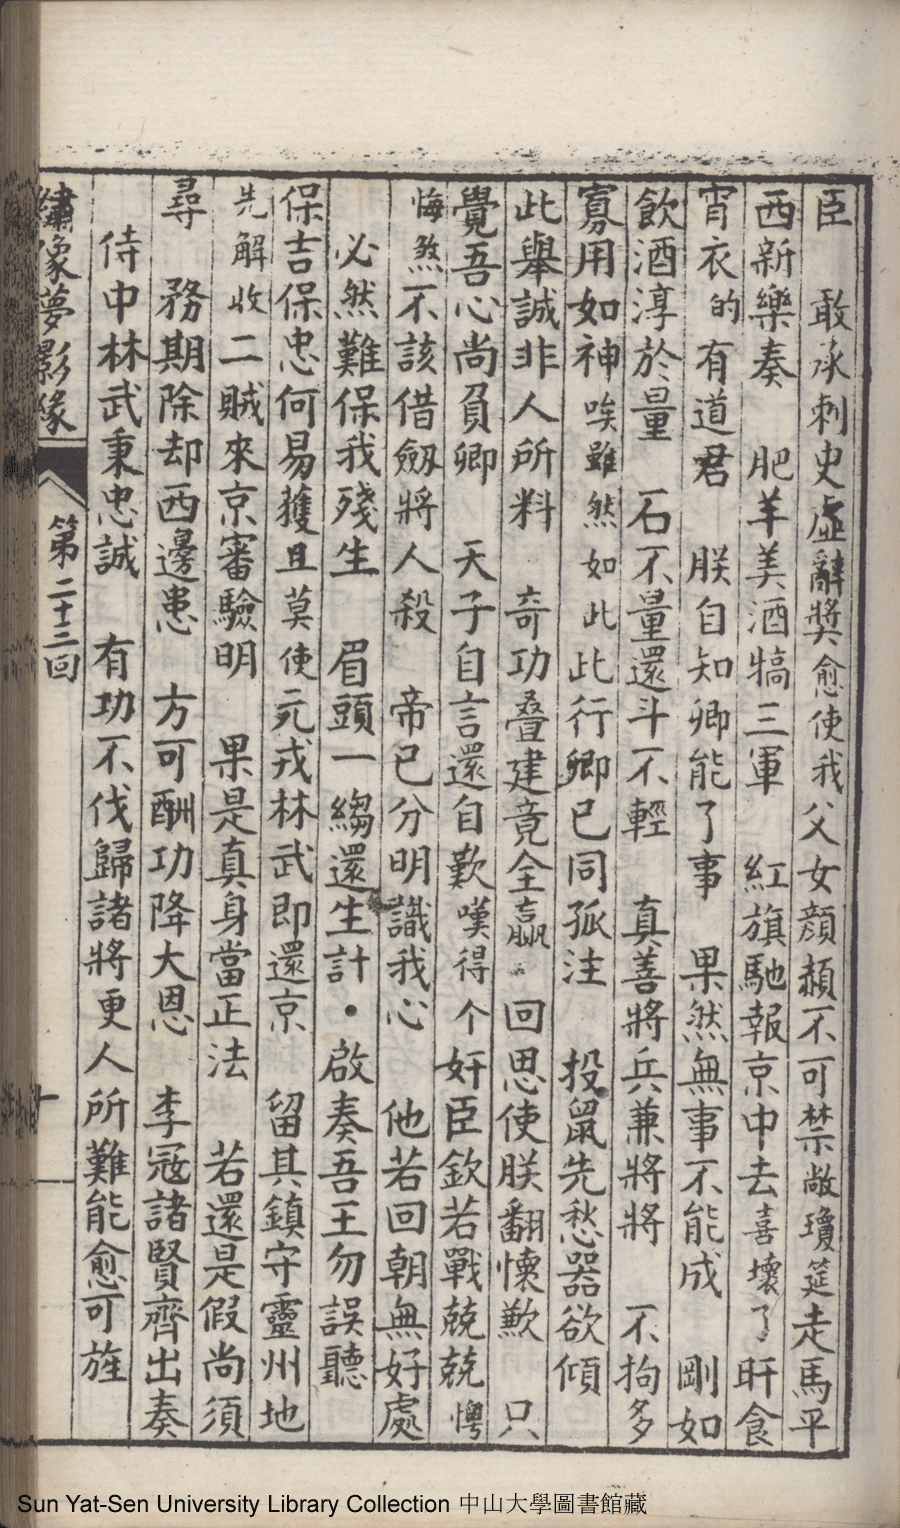 臣　敢承刺史虛辭獎愈使我父女顏頳不可禁敞瓊筵走馬平
西新樂奏　肥羊美酒犒三軍　紅旗馳報京中去喜壞了旰食
宵衣的有道君　朕自知卿能了事　果然無事不能成　剛如
飲酒淳於量　石不量還斗不輕　真善將兵兼將將　不拘多
寡用如神唉雖然如此此行卿已同孤注　投鼠先愁器欲傾
此舉誠非人所料　奇功叠建竟全贏　回思使朕翻懷歉　只
覺吾心尚負卿　天子自言還自歎嘆得个奸臣欽若戰兢兢愕
悔煞不該借劔將人殺　帝已分明識我心　他若回朝無好處
必然難保我殘生　眉頭一縐還生計・啟奏吾王勿誤聽
保吉保忠何易獲且莫使元戎林武即還京　留其鎮守靈州地
先解收二賊來京審驗明　果是真身當正法　若還是假尚須
尋　務期除却西邊患　方可酬功降大恩　李冦諸賢齊出奏
侍中林武秉忠誠　有功不伐歸諸將更人所難能愈可旌
繡像夢影緣　第二十二回
Sun Yat-Sen University Library Collection 中山大學圖書館藏